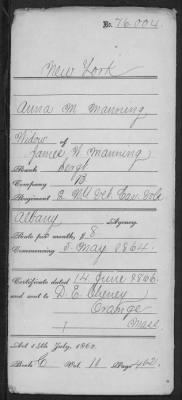 No. 76.004
New York
Anna M Manning
Widow of
James W Manning
Rank Sergt
Company B
Regiment 2 Mtd Vet Cav Vols
Albany Agency.
Rate per month, $ 8
Commencing 5 May 1864.
Certificate dated 14 June 1866.
and sent to D. E. Cheney
Orange
Mass
Act 14th July, 1862.
Book C Vol. 10 Page 462.